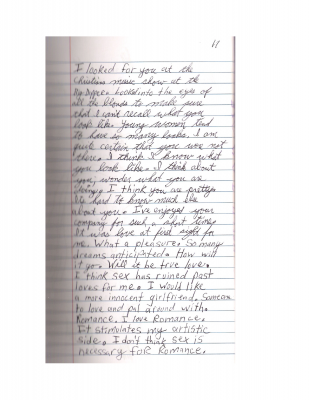 11
I looked for you at the
Christian music show at the
Big Dipper. Looked into the eyes of
all the blonds to make sure
that I can't recall what you
look like. Young women tend
to have so many looks. I am
quite certain that you were not
there. I think I know what
you look like. I think about
you, wonder what you are
doing. I think you are pretty.
It's hard to know much else
about you. I've enjoyed your
company for such a short time.
It was love at first sight for
me. What a pleasure. So many
dreams anticipated. How will
it go. Will it be true love.
I think sex has ruined past
loves for me. I would like
a more innocent girlfriend. Someone
to love and pal around with.
Romance. I love Romance.
It stimulates my artistic
side. I don't think sex is
necessary for Romance.